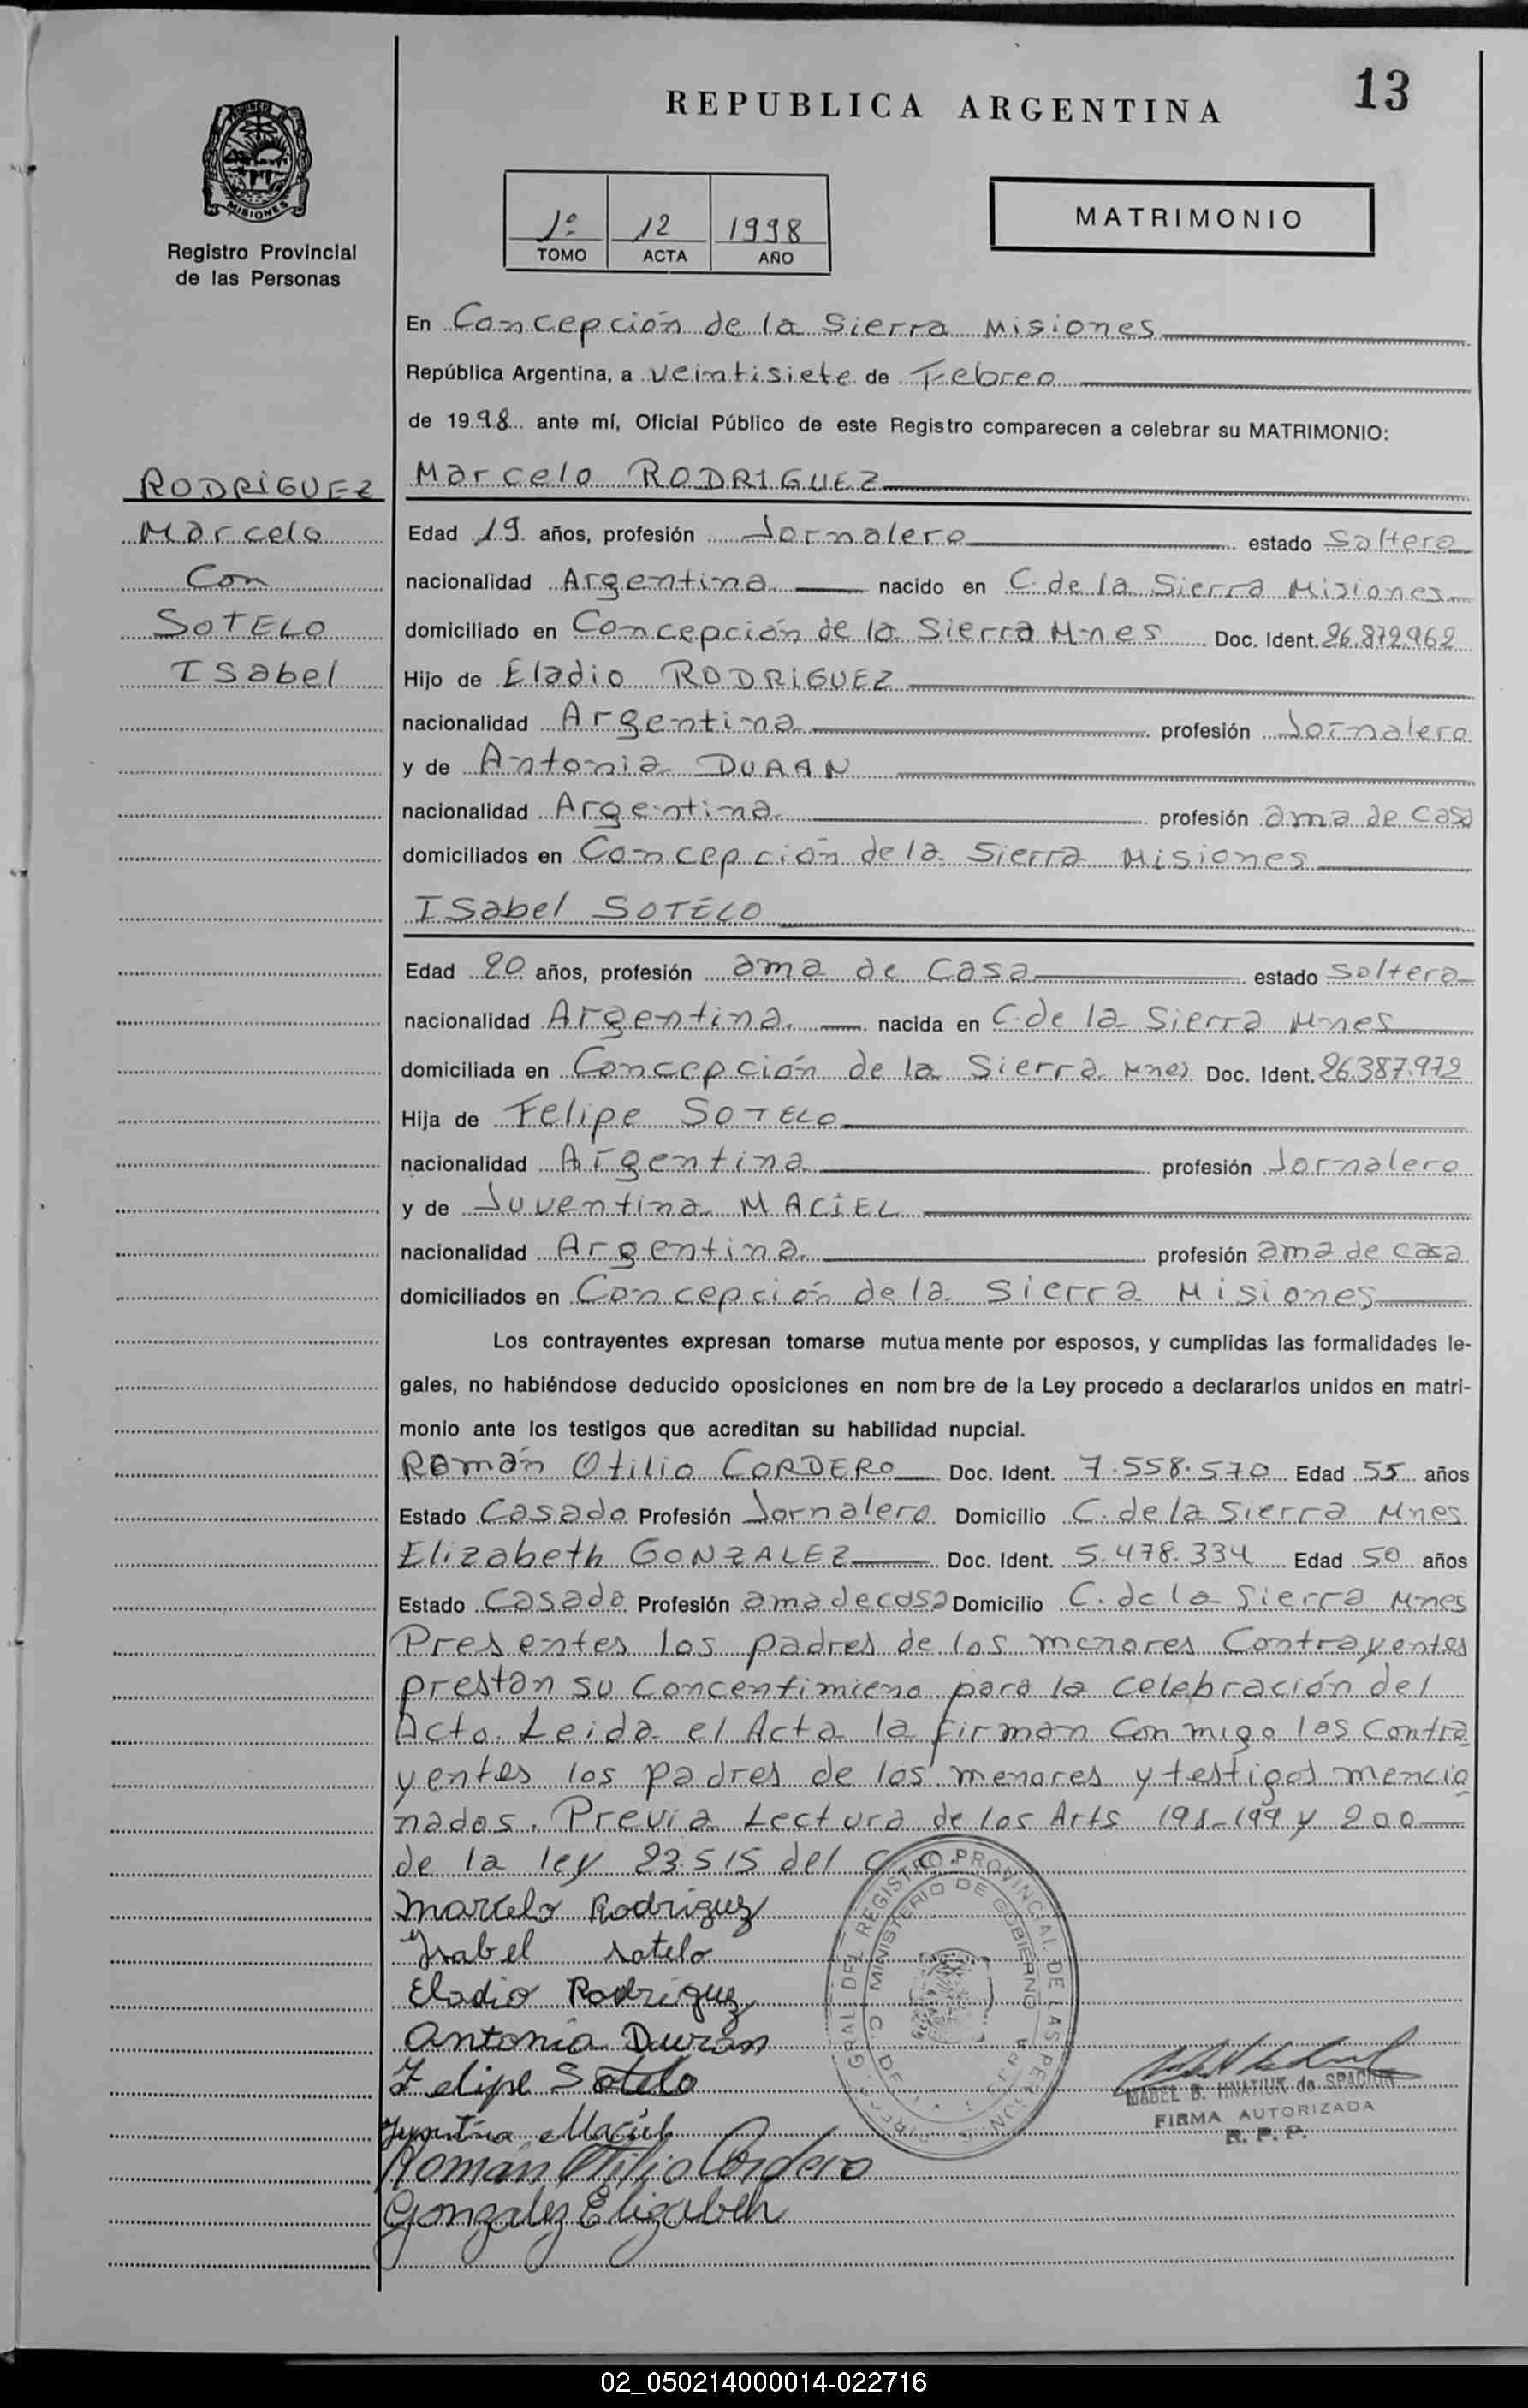 13
REPUBLICA ARGENTINA
MISIONES
Registro Provincial
de las Personas
1º 12 1998
TOMO ACTA AÑO
MATRIMONIO
En Concepción de la Sierra Misiones
República Argentina, a veintisiete de Febreo
de 1998 ante mí, Oficial Público de este Registro comparecen a celebrar su MATRIMONIO:
RODRIGUEZ
Marcelo
Con
SOTELO
ISabel
Marcelo RODRIGUEZ
Edad 19 años, profesión Jornalero estado Soltero
nacionalidad Argentina nacido en C. de la Sierra Misiones
domiciliado en Concepción de la Sierra Mnes Doc. Ident. 26.872.962
Hijo de Eladio RODRIGUEZ
nacionalidad Argentina profesión Jornalero
y de Antonia DURAN
nacionalidad Argentina profesión ama de casa
domiciliados en Concepción de la Sierra Misiones
ISabel SOTELO
Edad 20 años, profesión ama de casa estado soltera
nacionalidad Argentina nacida en C. de la Sierra Mnes
domiciliada en Concepción de la Sierra Mnes Doc. Ident. 26.387.972
Hija de Felipe SOTELO
nacionalidad Argentina profesión Jornalero
y de Juventina MACIEL
nacionalidad Argentina profesión ama de casa
domiciliados en Concepción de la Sierra Misiones
Los contrayentes expresan tomarse mutuamente por esposos, y cumplidas las formalidades le-
gales, no habiéndose deducido oposiciones en nombre de la Ley procedo a declararlos unidos en matri-
monio ante los testigos que acreditan su habilidad nupcial.
Román Otilio CORDERO Doc. Ident. 7.558.570 Edad 55 años
Estado Casado Profesión Jornalero Domicilio C. de la Sierra Mnes
Elizabeth GONZALEZ Doc. Ident. 5.478.334 Edad 50 años
Estado Casada Profesión ama de casa Domicilio C. de la Sierra Mnes
Presentes los padres de los menores Contrayentes
prestan su Concentimieno para la celebración del
Acto. Leida el Acta la firman Con migo los Contra
yentes los padres de los menores y testigos mencio
nados. Previa Lectura de los Arts 198-199 y 200
de la ley 23.515 del C.C.
Marcelo Rodriguez
Ysabel sotelo
Eladio Rodriguez
Antonia Durán
Felipe Sotelo
Maciel
Román Otilio Cordero
Gonzalez Elizabeh
GRAL DEL REGISTRO PROVINCIAL DE LAS PERSONAS
MINISTERIO DE GOBIERNO
MABEL B. HNATIUK de SPACIUK
FIRMA AUTORIZADA
R. P. P.
02_050214000014-022716